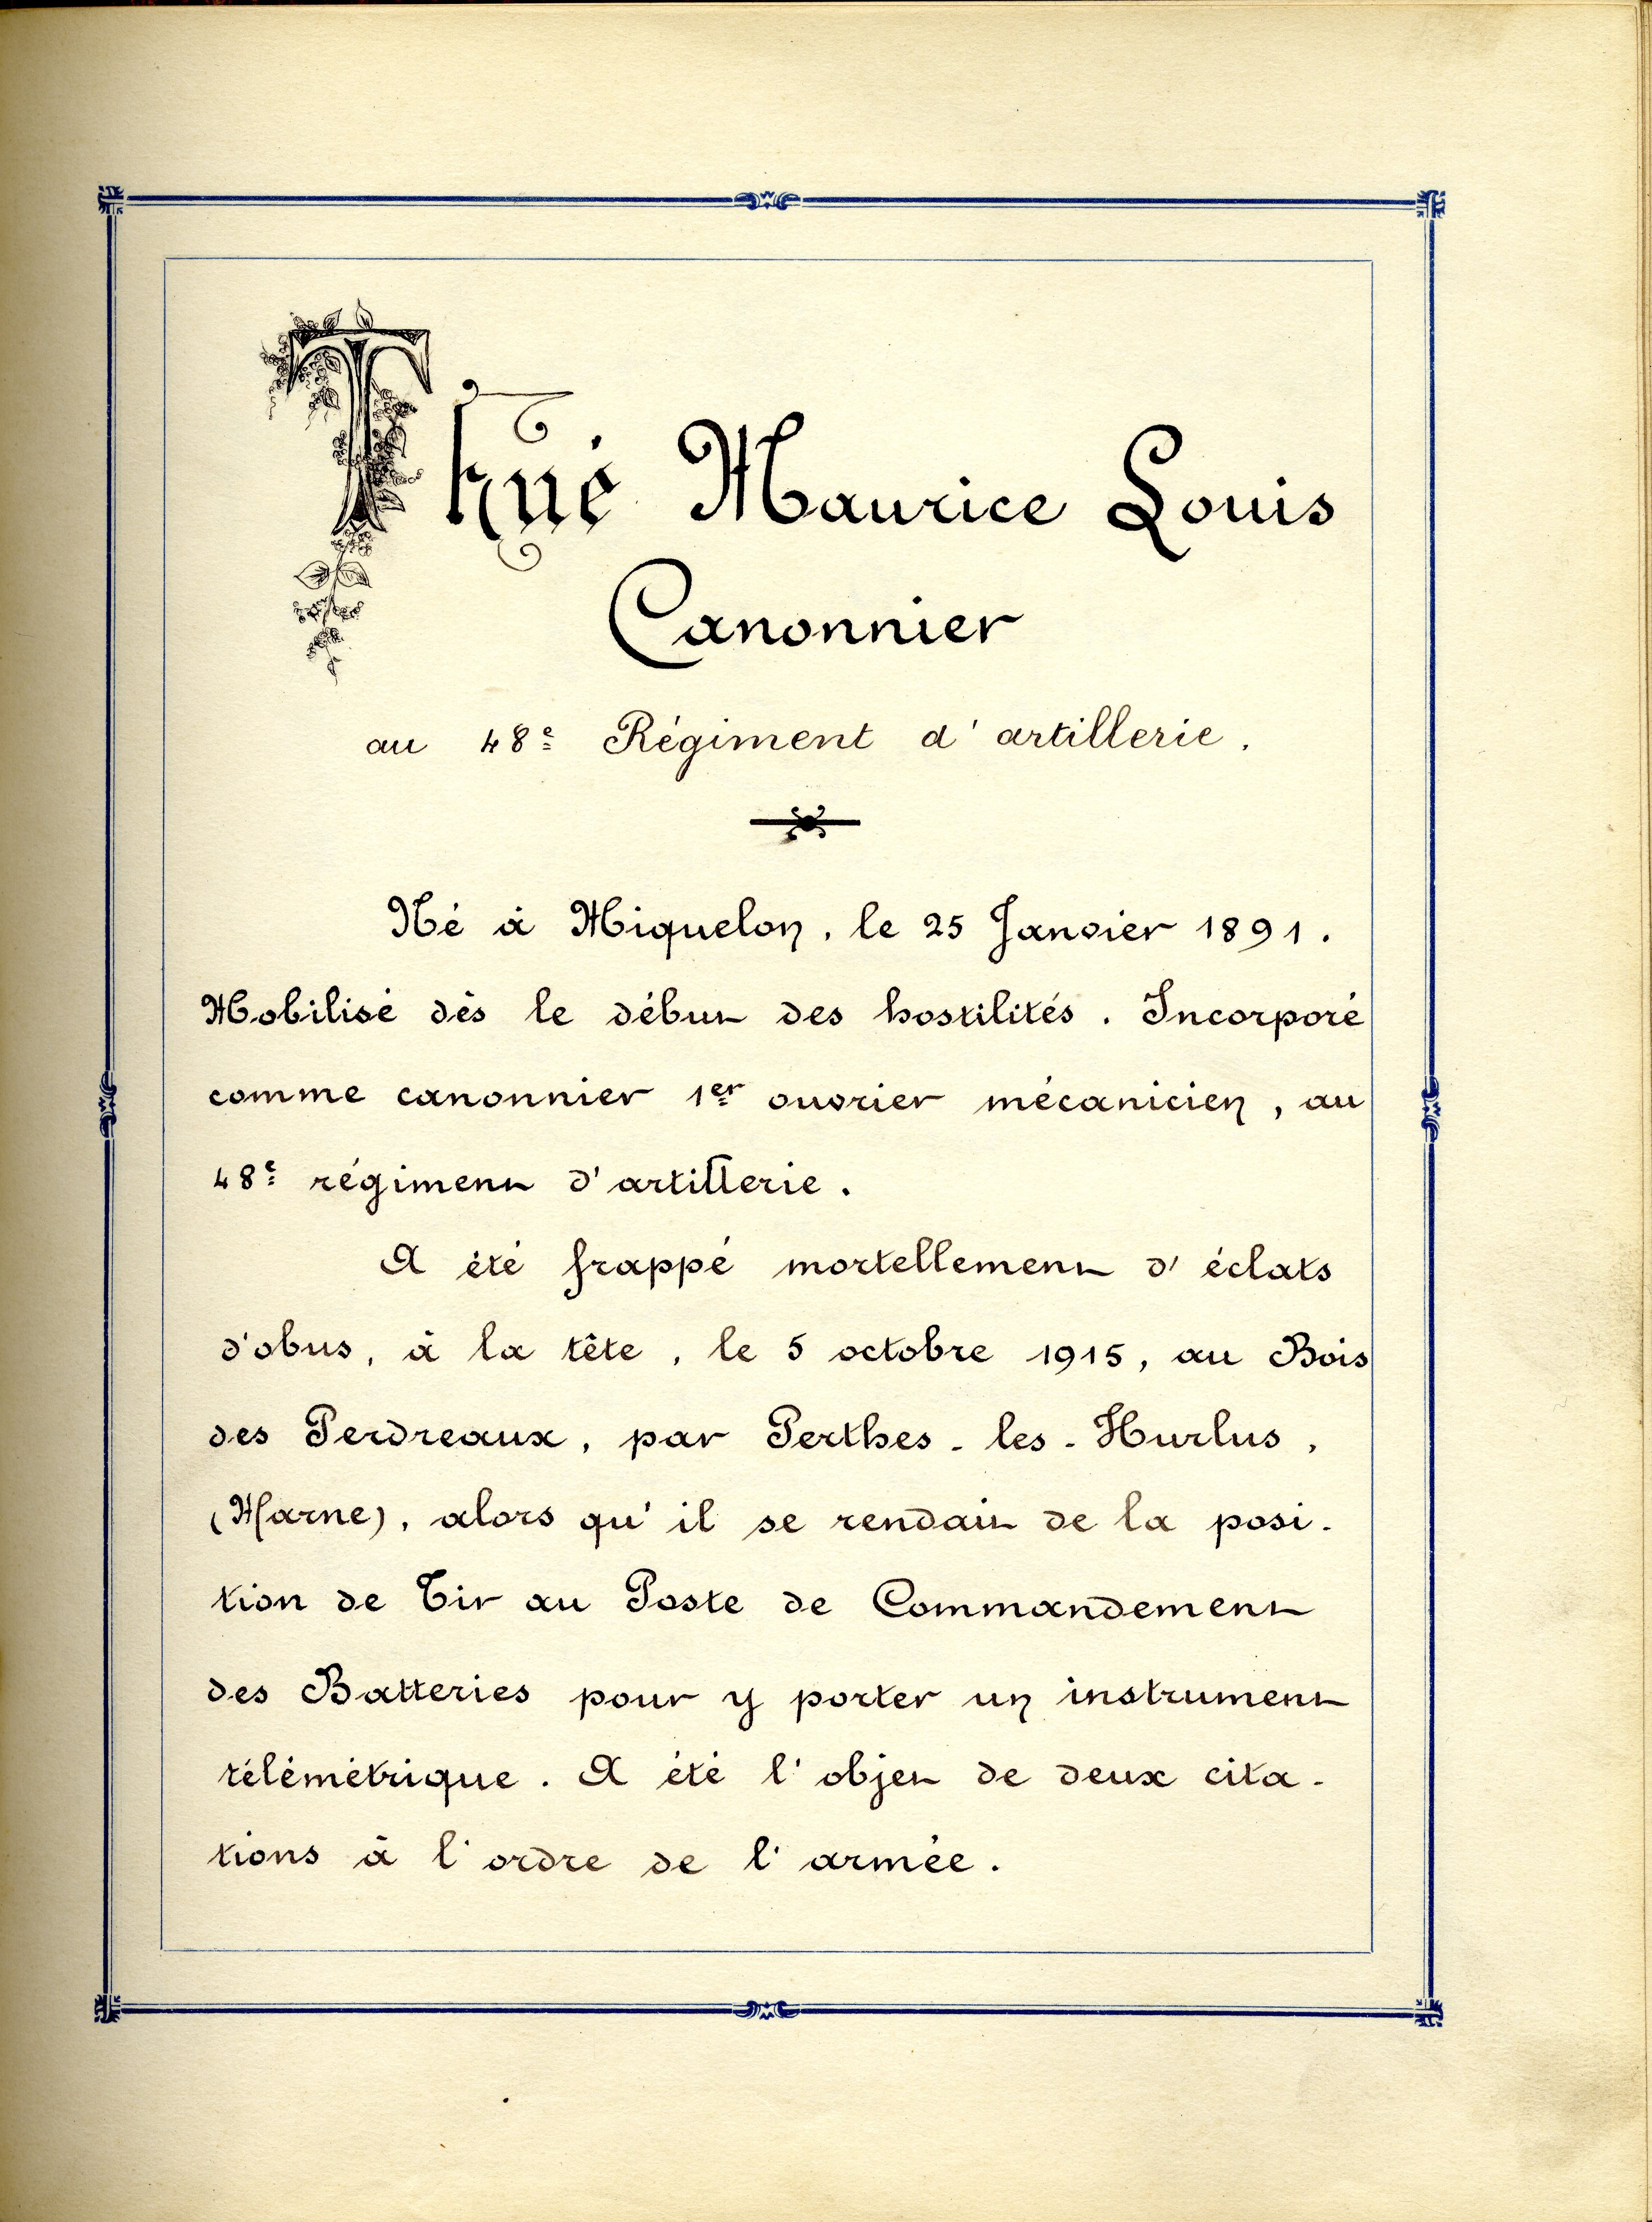 Thué Maurice Louis
Canonnier
au 48e Régiment d'artillerie.
Né à Miquelon, le 25 Janvier 1891.
Mobilisé dès le début des hostilités. Incorporé
comme canonnier 1er ouvrier mécanicien, au
48e régiment d'artillerie.
A été frappé mortellement d'éclats
d'obus, à la tête, le 5 octobre 1915, au Bois
des Perdreaux, par Perthes-les-Hurlus,
(Marne), alors qu'il se rendait de la posi-
tion de Tir au Poste de Commandement
des Batteries pour y porter un instrument
télémétrique. A été l'objet de deux cita-
tions à l'ordre de l'armée.